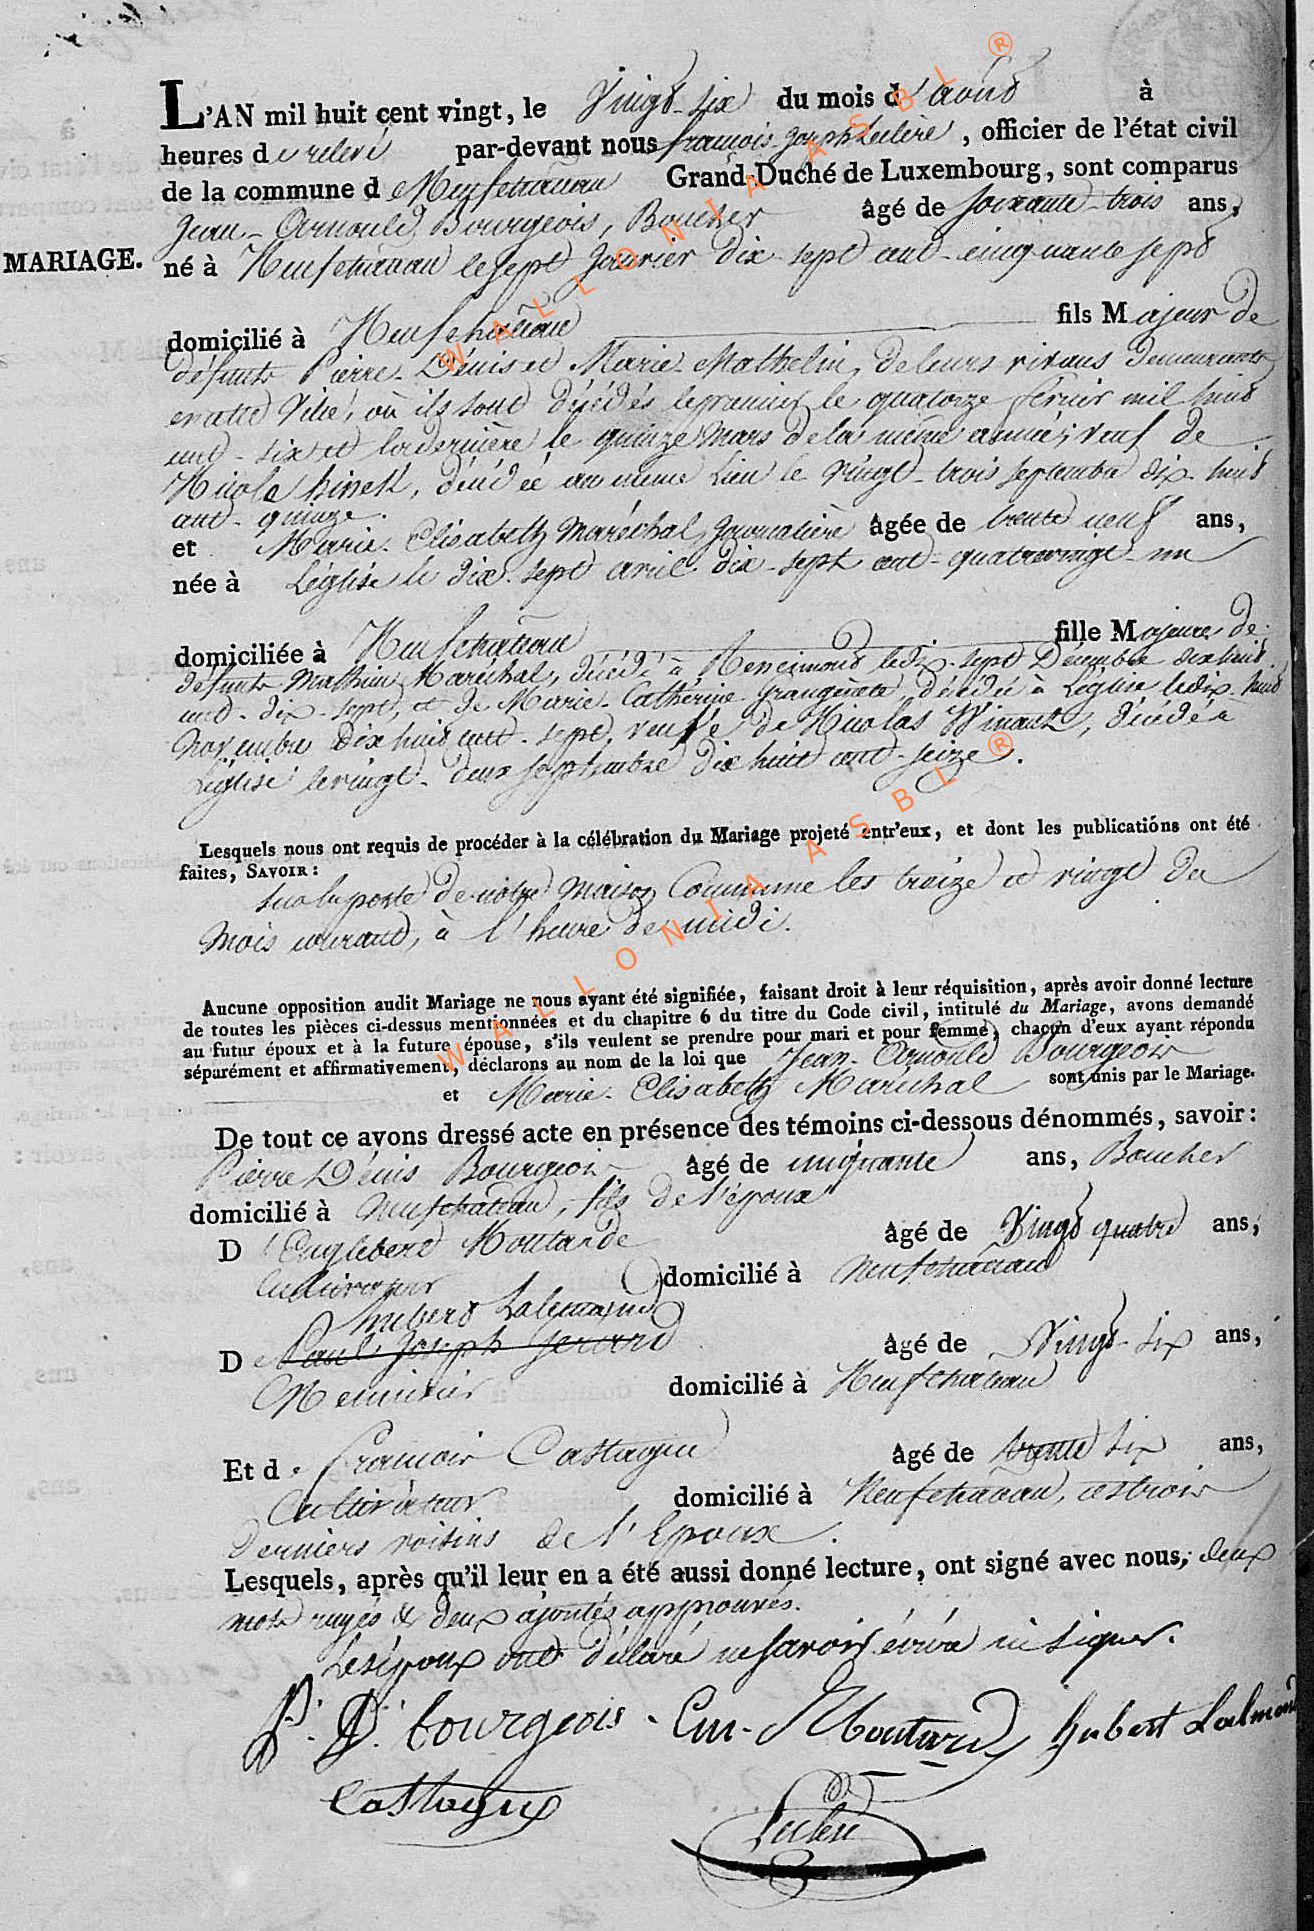 L'AN mil huit cent vingt, le Vingt-six du mois d'aout à
heures de relevé par-devant nous françois-joseph Leclère, officier de l'état civil
de la commune de Neufchateau Grand-Duché de Luxembourg, sont comparus
Jean-Arnould Bourgeois, Boucher âgé de soixante-trois ans,
MARIAGE.
né à Neufchateau le sept Janvier dix-sept cent-cinquante sept
domicilié à Neufchateau fils Majeur de
défunts Pierre-Dénis et Marie-Mathelin, de leurs vivans demeurants
en cette Ville, où ils sont décédés le premier le quatorze février mil huit
cent-six et la dernière le quinze Mars de la même année; veuf de
Nicole, décédée au même Lieu le vingt-trois septembre dix-huit
cent-quinze.
et Marie-Elisabeth Maréchal, Journalière âgée de trente neuf ans,
née à Léglise le dix-sept avril dix-sept cent-quatrevingt-un
domiciliée à Neufchateau fille Majeure de
défunts Mathieu Maréchal, décédé à le dix-sept Décembre dix huit
cent-dix-sept, et de Marie-Cathérine, décédée à Léglise le dix-huit
novembre dix huit cent-sept, veuve de Nicolas Winant, décédé à
Léglise le vingt-deux septembre dix huit cent-seize.
Lesquels nous ont requis de procéder à la célébration du Mariage projeté entr'eux, et dont les publications ont été
faites, SAVOIR:
sur la porte de notre Maison Commune les treize et vingt du
mois courant, à l'heure de midi.
Aucune opposition audit Mariage ne nous ayant été signifiée, faisant droit à leur réquisition, après avoir donné lecture
de toutes les pièces ci-dessus mentionnées et du chapitre 6 du titre du Code civil, intitulé du Mariage, avons demandé
au futur époux et à la future épouse, s'ils veulent se prendre pour mari et pour femme, chacun d'eux ayant répondu
séparément et affirmativement, déclarons au nom de la loi que Jean-Arnould Bourgeois
et Marie-Elisabeth Maréchal sont unis par le Mariage.
De tout ce avons dressé acte en présence des témoins ci-dessous dénommés, savoir:
Pierre Dénis Bourgeois âgé de cinquante ans, Boucher
domicilié à Neufchateau, fils de l'époux
D'Englebert Moutarde âgé de Vingt quatre ans,
Cultivateur domicilié à Neufchateau
hubert Lalemand
De Paul Joseph Gerard âgé de Vingt-six ans,
Menuisier domicilié à Neufchateau
Et de françois Castagne âgé de trente six ans,
Cultivateur domicilié à Neufchateau, ces trois
Derniers voisins de l'Epoux.
Lesquels, après qu'il leur en a été aussi donné lecture, ont signé avec nous, deux
mots rayés & deux ajoutés approuvés.
Les époux ont déclaré ne savoir écrire ni signer.
P. D. bourgeois - En-Moutard hubert Lalmand
Castagne
Leclere
WALLONIA ASBL ®
WALLONIA ASBL ®